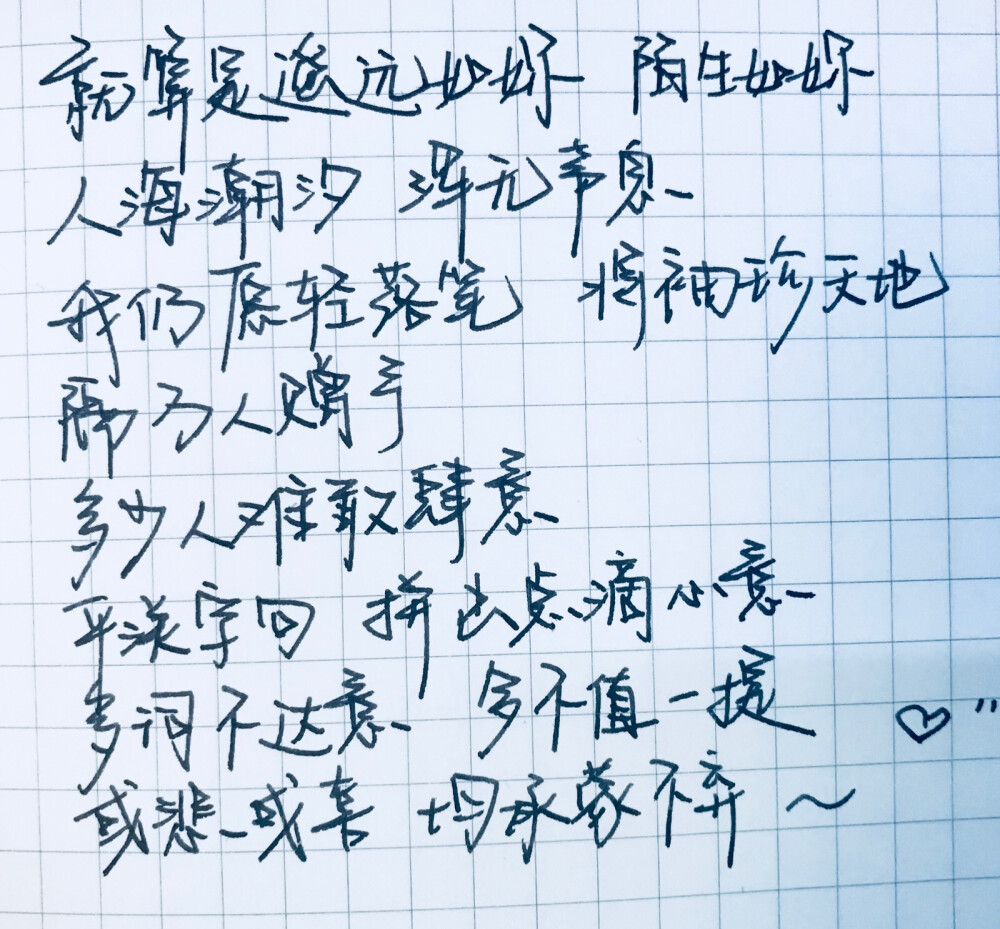 就算是遥远如妳 陌生如妳
人海潮汐 浑无声息
我仍愿轻落笔 将袖珍天地
聊为人赠予
多少人难敢肆意
平淡字句 拼出点滴心意
多词不达意 多不值一提
或悲或喜 均承蒙不弃～